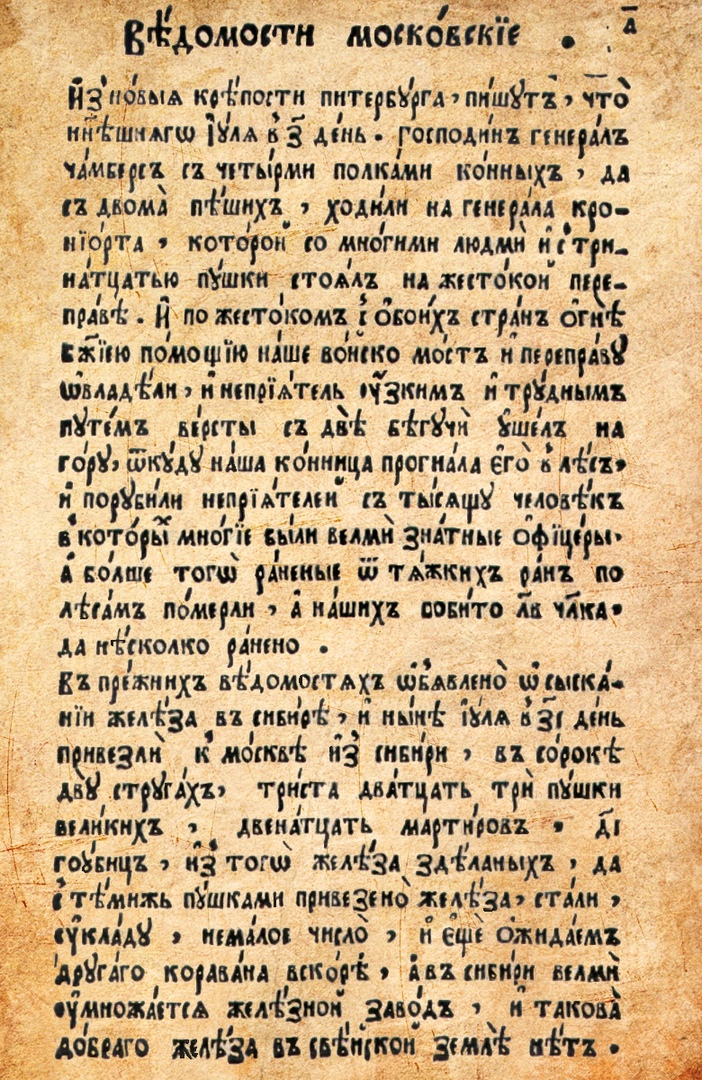 Вѣ́домости моско́вскїе . а҃
И҆З̾ но́выѧ крѣ́пости питербꙋ́рга, пи́шꙋтъ, что̀
нн҃ѣшнѧгѡ і҆ꙋ́лѧ в̾ з҃ де́нь. господи́нъ генера́лъ
ча́мберсъ съ четы́рми полка́ми ко́нныхъ, да
съ двома̀ пѣ́шихъ, ходи́ли на генера́ла кро-
нїо́рта, кото́рой со мно́гими людмѝ и҆ с̾ три-
на́тцатью пꙋ́шки стоѧ́лъ на жесто́кой пере-
пра́вѣ. И҆ по жесто́комъ с̾ о҆бои́хъ стра́нъ о҆гнѣ̀
бж҃їею по́мощїю на́ше во́йско мо́стъ и҆ перепра́вꙋ
ѡ҆владѣ́ли, и҆ непрїѧ́тель ᲂу҆́зкимъ и҆ трꙋ́днымъ
пꙋте́мъ ве́рсты съ двѣ̀ бѣгꙋчѝ ꙋ҆ше́лъ на
го́рꙋ, ѿкꙋ́дꙋ на́ша ко́нница прогна́ла є҆го̀ в̾ лѣ́съ,
и҆ порꙋби́ли непрїѧ́телей съ ты́сѧщꙋ человѣ́къ
в̾ кото́рыⷯ мно́гїе бы́ли велмѝ зна́тные о҆фїце́ры,
а҆ бо́лше тогѡ̀ ра́неные ѿ тѧ́жкихъ ра́нъ по
лѣса́мъ по́мерли, а҆ на́шихъ побито л҃в чл҃ка,
да нѣ́сколко ра́нено .
Въ пре́жнихъ вѣ́домостѧхъ ѡ҆б̾ѧвлено̀ ѡ҆ сыска́-
нїи желѣ́за въ сиби́рѣ, и҆ ны́нѣ і҆ꙋ́лѧ в̾ з҃і де́нь
привезлѝ к̾ москвѣ̀ и҆з̾ сиби́ри, въ со́рокѣ
двꙋ̀ стрꙋга́хъ, три́ста два́тцать трѝ пꙋ́шки
вели́кихъ, двена́тцать марти́ровъ, д҃і
гоꙋ́бицъ, и҆з̾ тогѡ̀ желѣ́за здѣ́ланыхъ, да
с̾ тѣ́мижь пꙋ́шками привезено̀ желѣ́за, ста́ли,
ᲂу҆кла́дꙋ, нема́лое число̀, и҆ є҆щѐ о҆жида́емъ
дрꙋга́го корава́на вско́рѣ, а҆ въ сиби́ри велмѝ
ᲂу҆множа́етсѧ желѣ́зной заво́дъ, и҆ такова̀
до́браго желѣ́за въ свѣ́йской землѣ̀ нѣ́тъ .